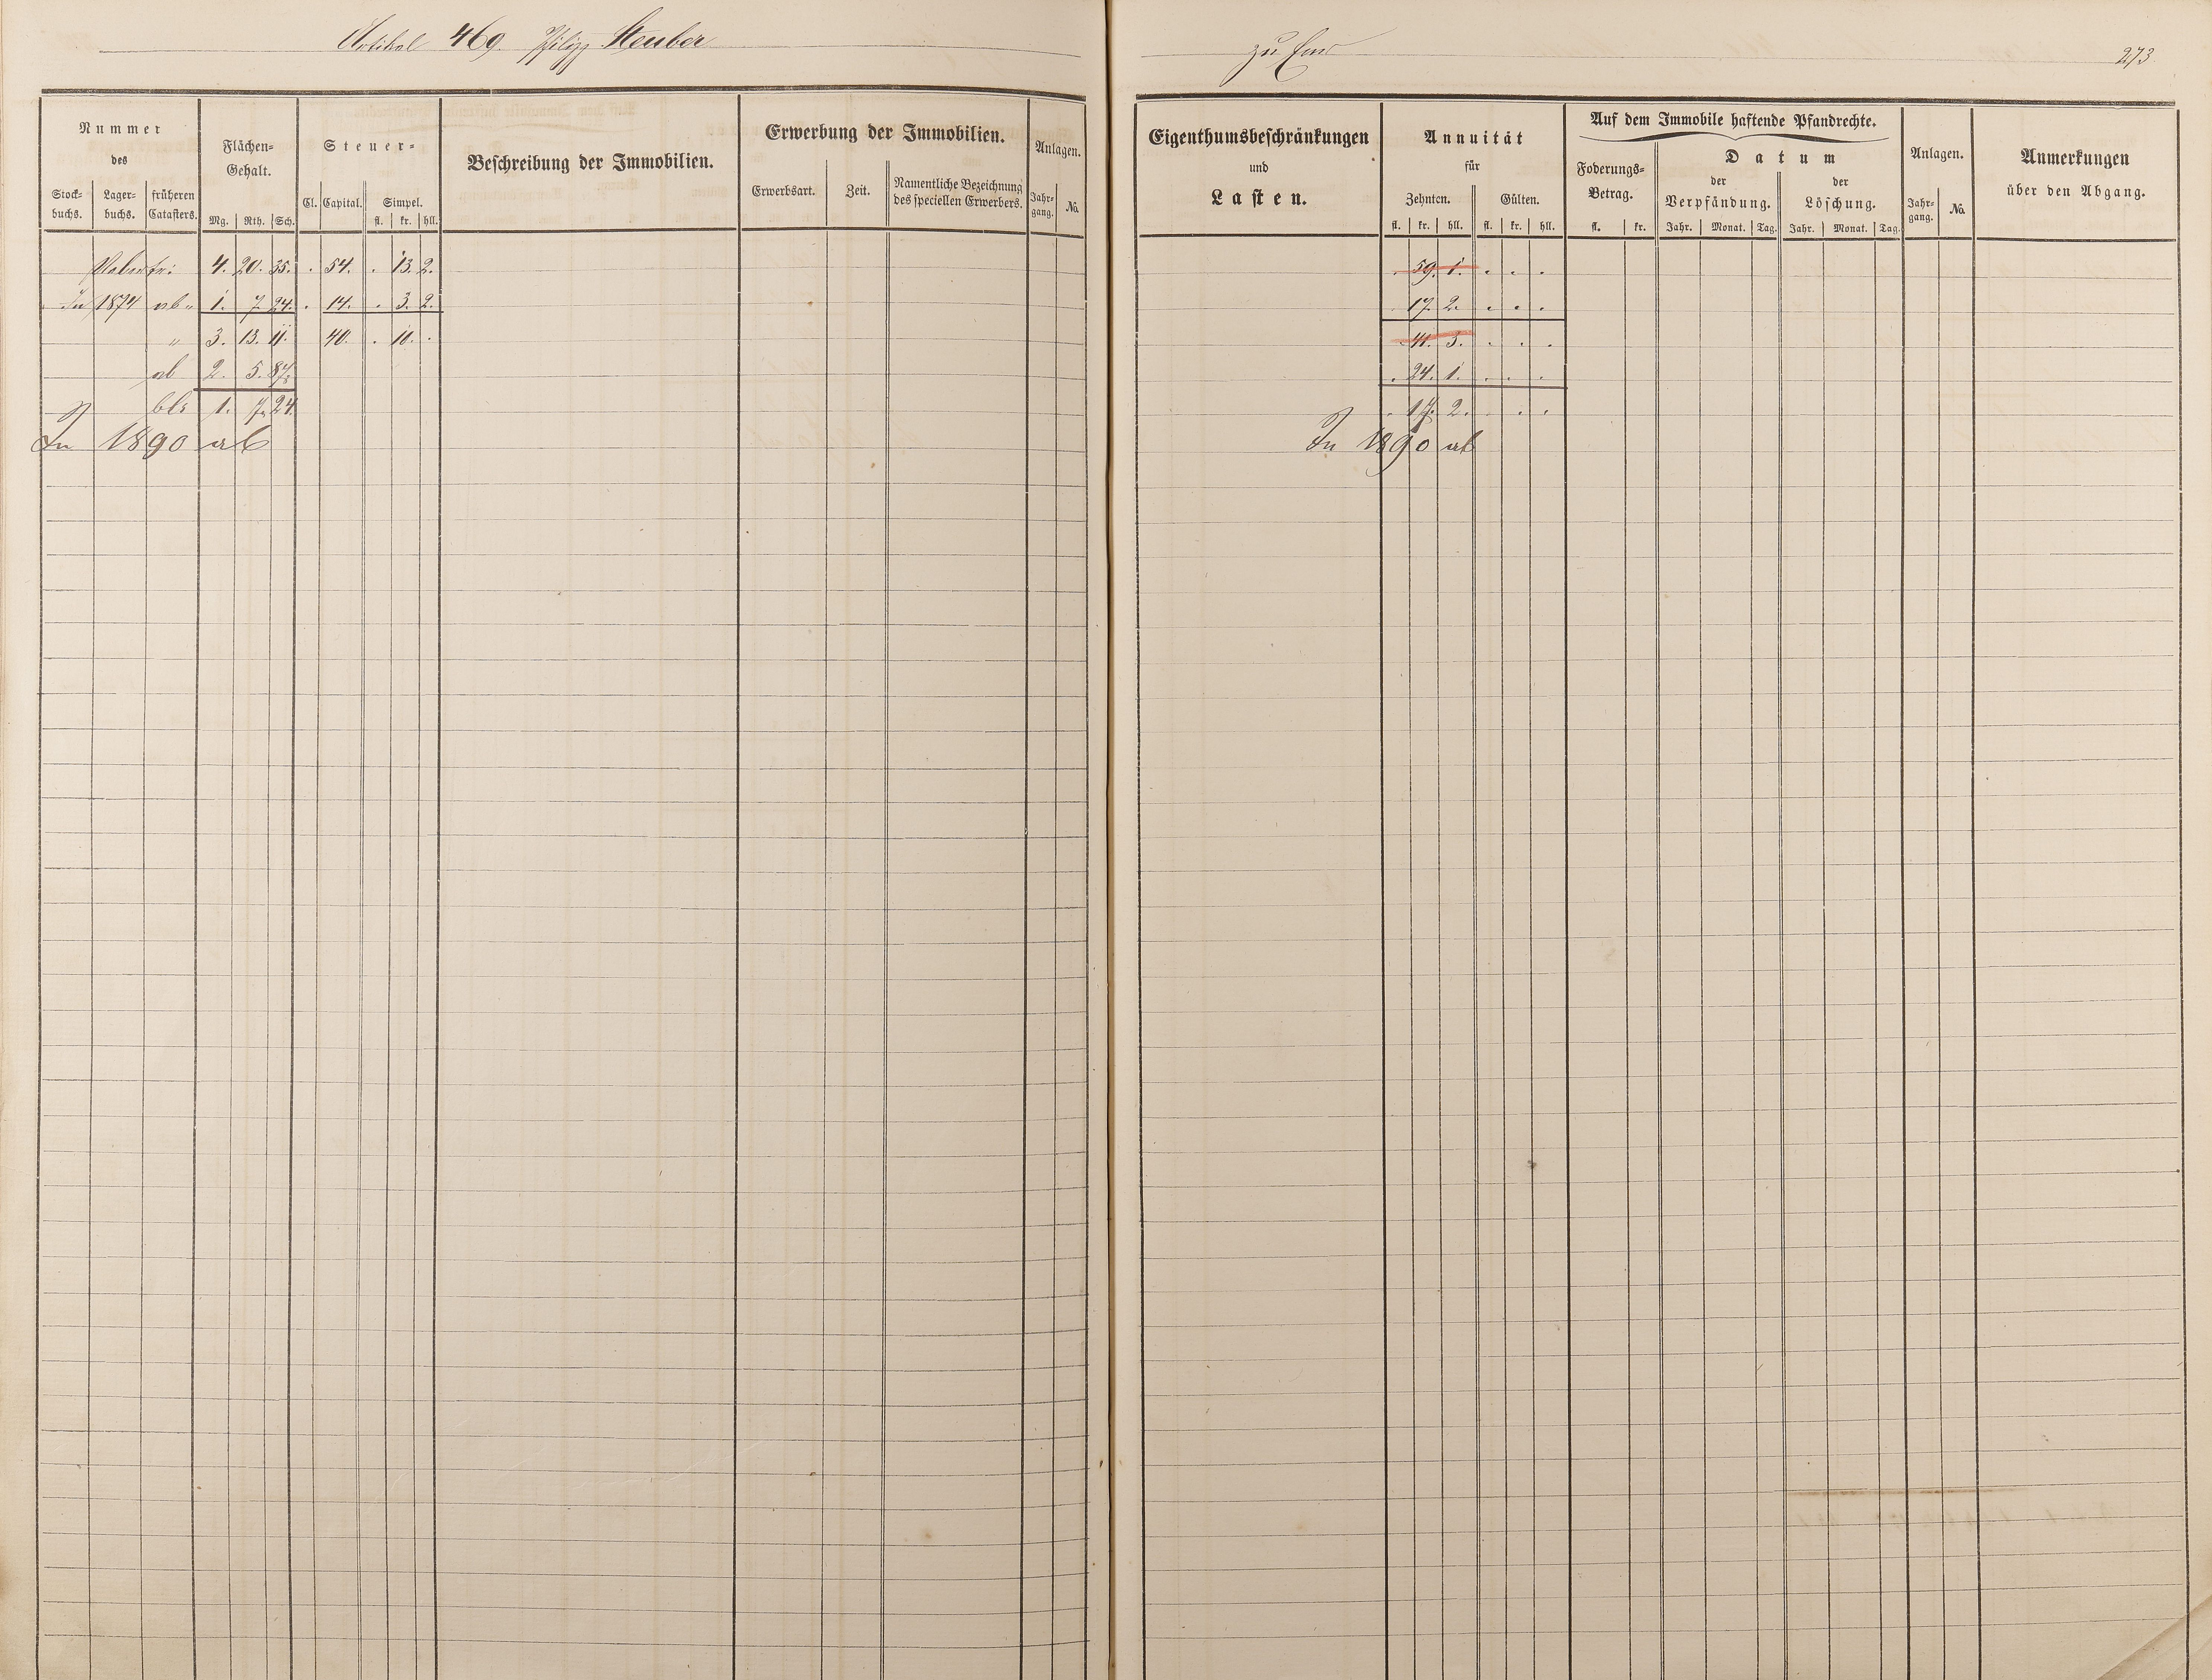 Artikel 469 Philipp Steuber
zu Ems
273
Nummer
des
Stock-
buchs.
Lager-
buchs.
früheren
Catasters.
Flächen-
Gehalt.
Mg. Rth. Sch.
Steuer-
Cl. Capital. Simpel.
fl. kr. hll.
Beschreibung der Immobilien.
Erwerbung der Immobilien.
Erwerbsart. Zeit.
Namentliche Bezeichnung
des speciellen Erwerbers.
Anlagen.
Jahr-
gang.
No.
Eigenthumsbeschränkungen
und
Lasten.
Annuität
für
Zehnten. Gülten.
fl. kr. hll. fl. kr. hll.
Auf dem Immobile haftende Pfandrechte.
Foderungs-
Betrag.
fl. kr.
Datum
der
Verpfändung.
Jahr. Monat. Tag.
der
Löschung.
Jahr. Monat. Tag.
Anlagen.
Jahr-
gang.
No.
Anmerkungen
über den Abgang.
4. 20. 35. . 54. . 13. 2.
In 1874 ab " 1. 7. 24. . 14. . 3. 2.
" 3. 13. 11. 40. . 10. .
ab 2. 5. 87
blt 1. 7. 24
In 1890 ab
. 59. 1. . . .
. 17. 2. . . .
. 41. 3. . . .
. 24. 1. . . .
. 17. 2. . . .
In 1890 ab